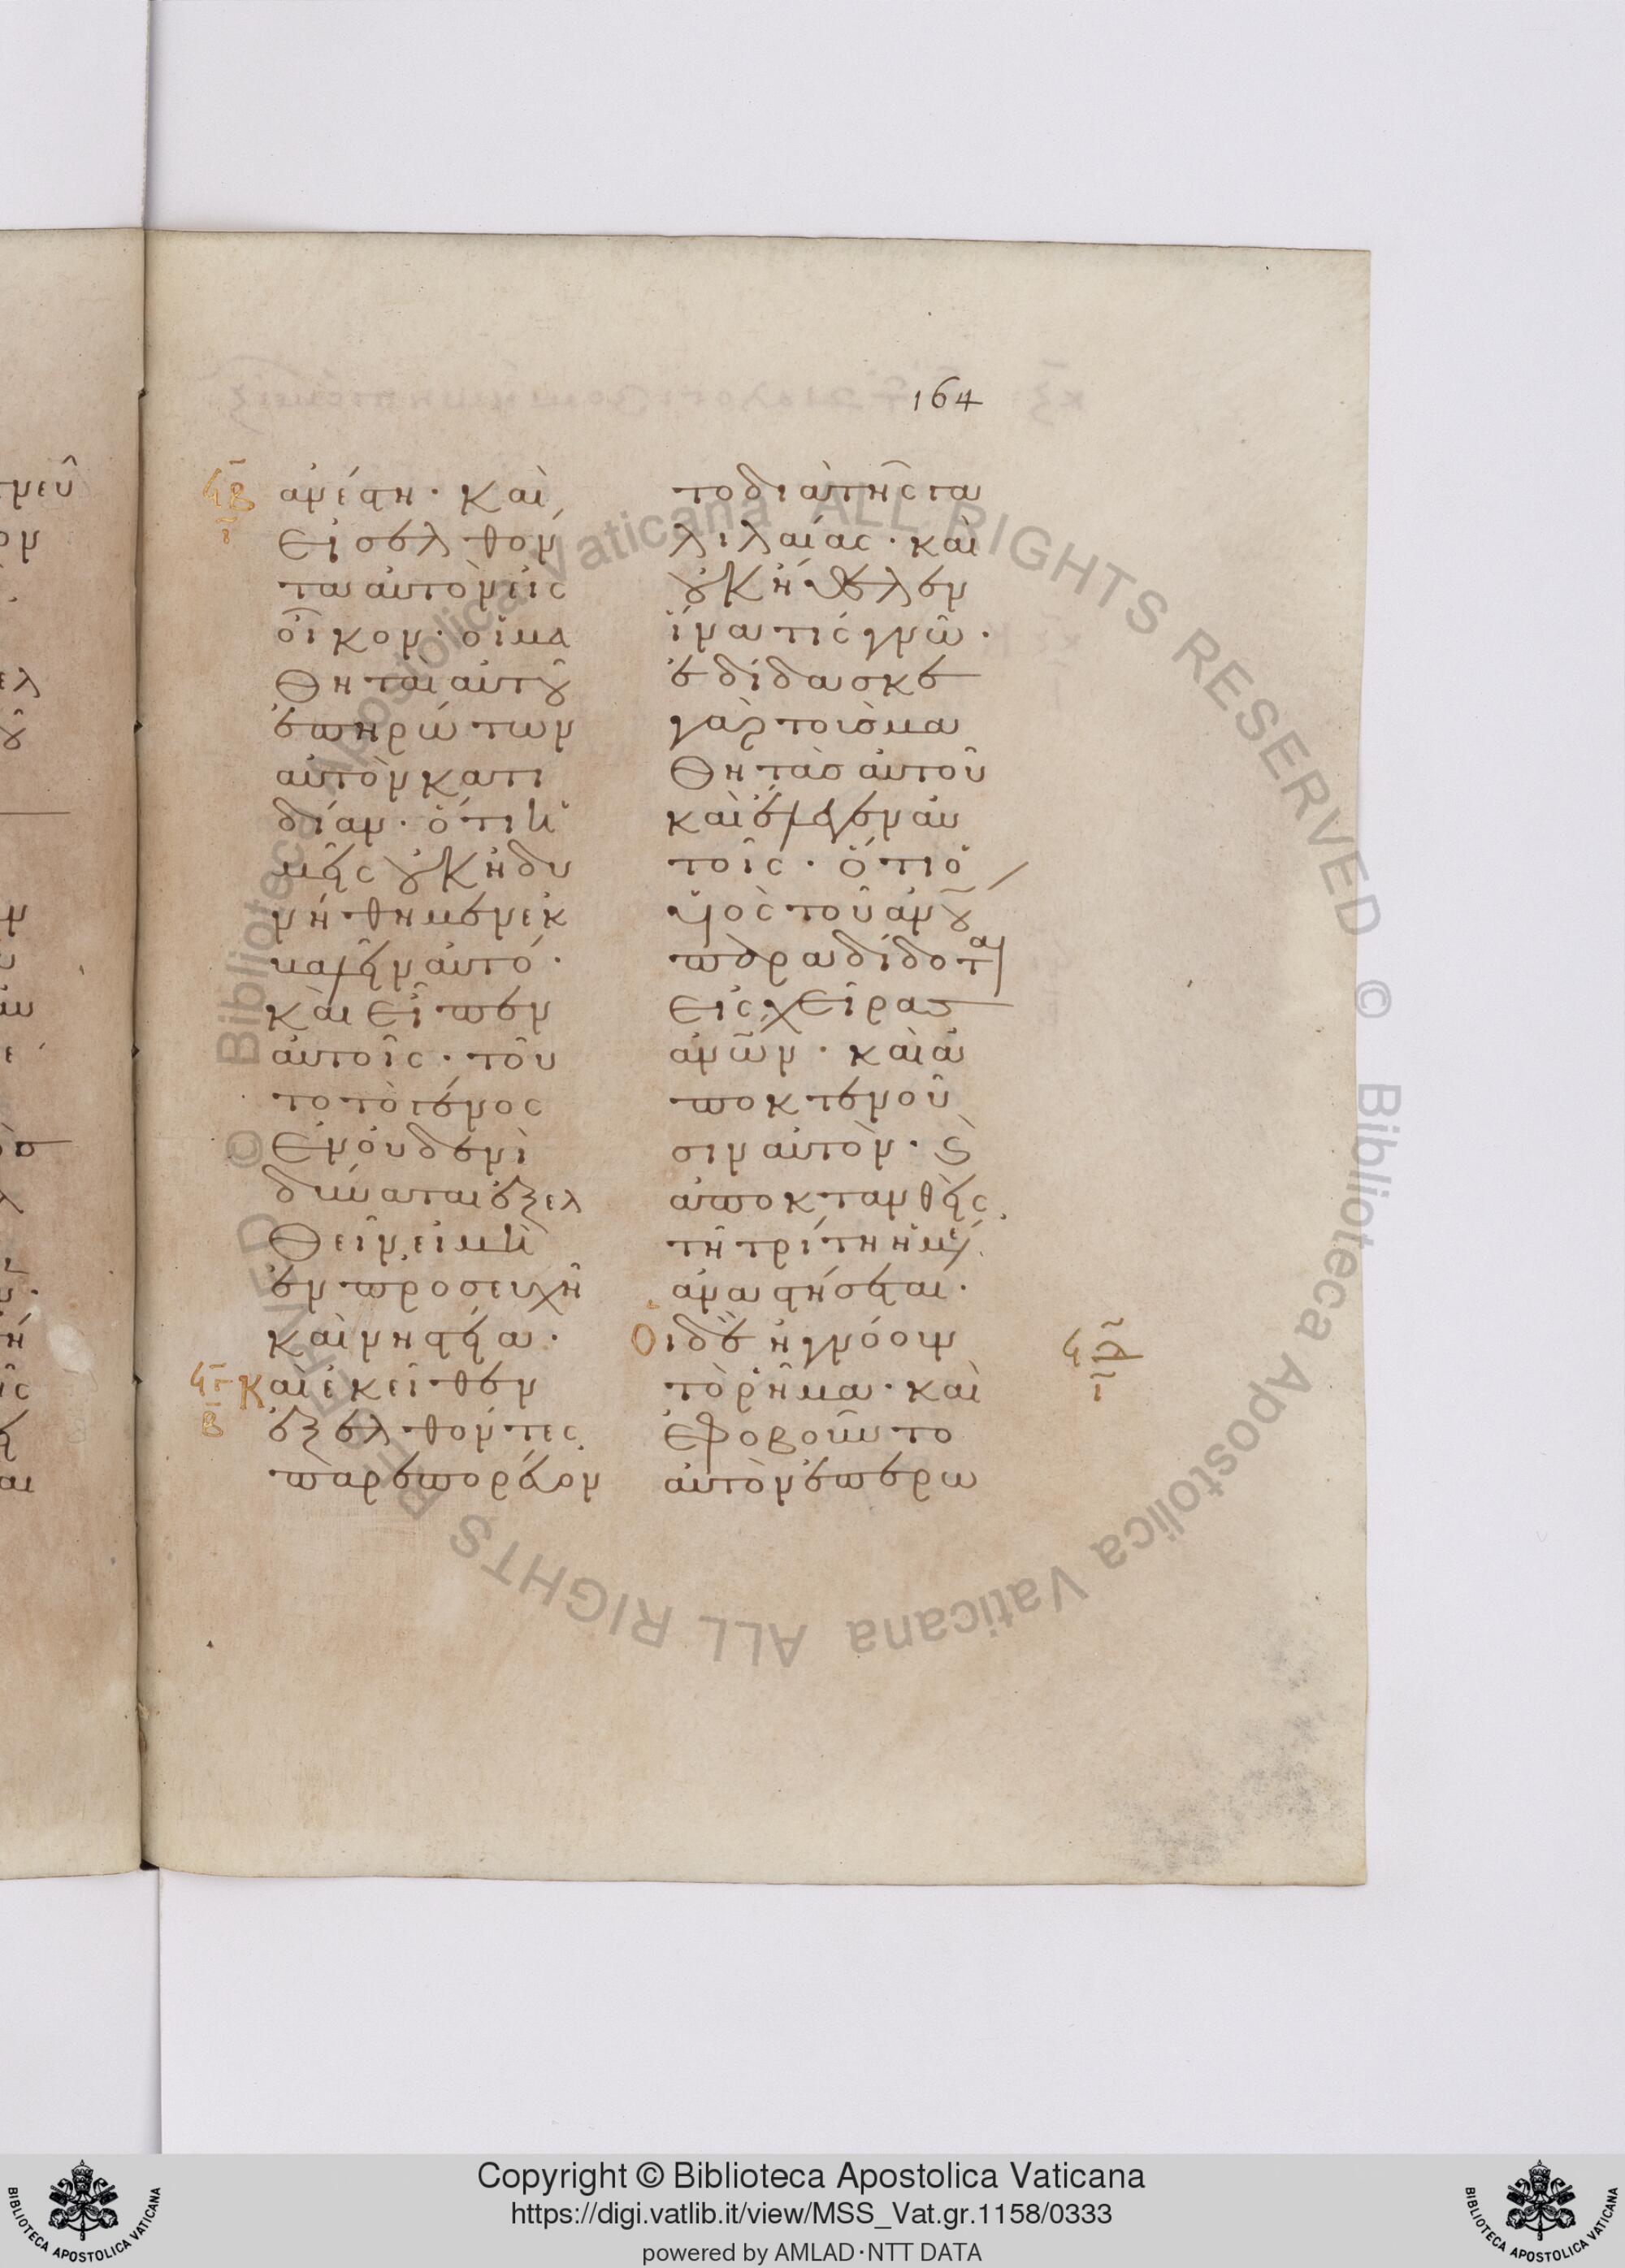 164
ϟβ
ι
ἀνέστη· Καὶ
εἰσελθόν
τα αὐτὸν εἰς
οἶκον· οἱ μα
θηταὶ αὐτοῦ
ἐπηρώτων
αὐτὸν κατι
δίαν· ὅτι ἡ
μεῖς οὐκ ἠδυ
νήθημεν ἐκ
βαλεῖν αὐτό·
καὶ εἶπεν
αὐτοῖς· τοῦ
το τὸ γένος
ἐν οὐδενὶ
δύναται ἐξελ
θεῖν, εἰ μὴ
ἐν προσευχῆ
καὶ νηστεία·
ϟγ
β
Καὶ ἐκεῖθεν
ἐξελθόντες,
παρεπορεύον
το διὰ τῆς γα
λιλαίας· καὶ
οὐκ ἤθελεν
ἵνα τίς γνῶ·
ἐδίδασκε
γὰρ τοὺς μα
θητὰς αὐτοῦ
καὶ ἔλεγεν αὐ
τοῖς· ὅτι ὁ
υἱὸς τοῦ ἀνου
παραδίδοται
εἰς χεῖρας
ἀνων· καὶ ἀ
ποκτενοῦ
σιν αὐτὸν· ϗ
ἀποκτανθεὶς,
τῆ τρίτη ἡμέ
ἀναστήσεται·
Οἱ δὲ ἠγνόουν
ϟδ
ι
τὸ ῥῆμα· καὶ
ἐφοβοῦντο
αὐτὸν ἐπερω
Copyright © Biblioteca Apostolica Vaticana
https://digi.vatlib.it/view/MSS_Vat.gr.1158/0333
powered by AMLAD·NTT DATA